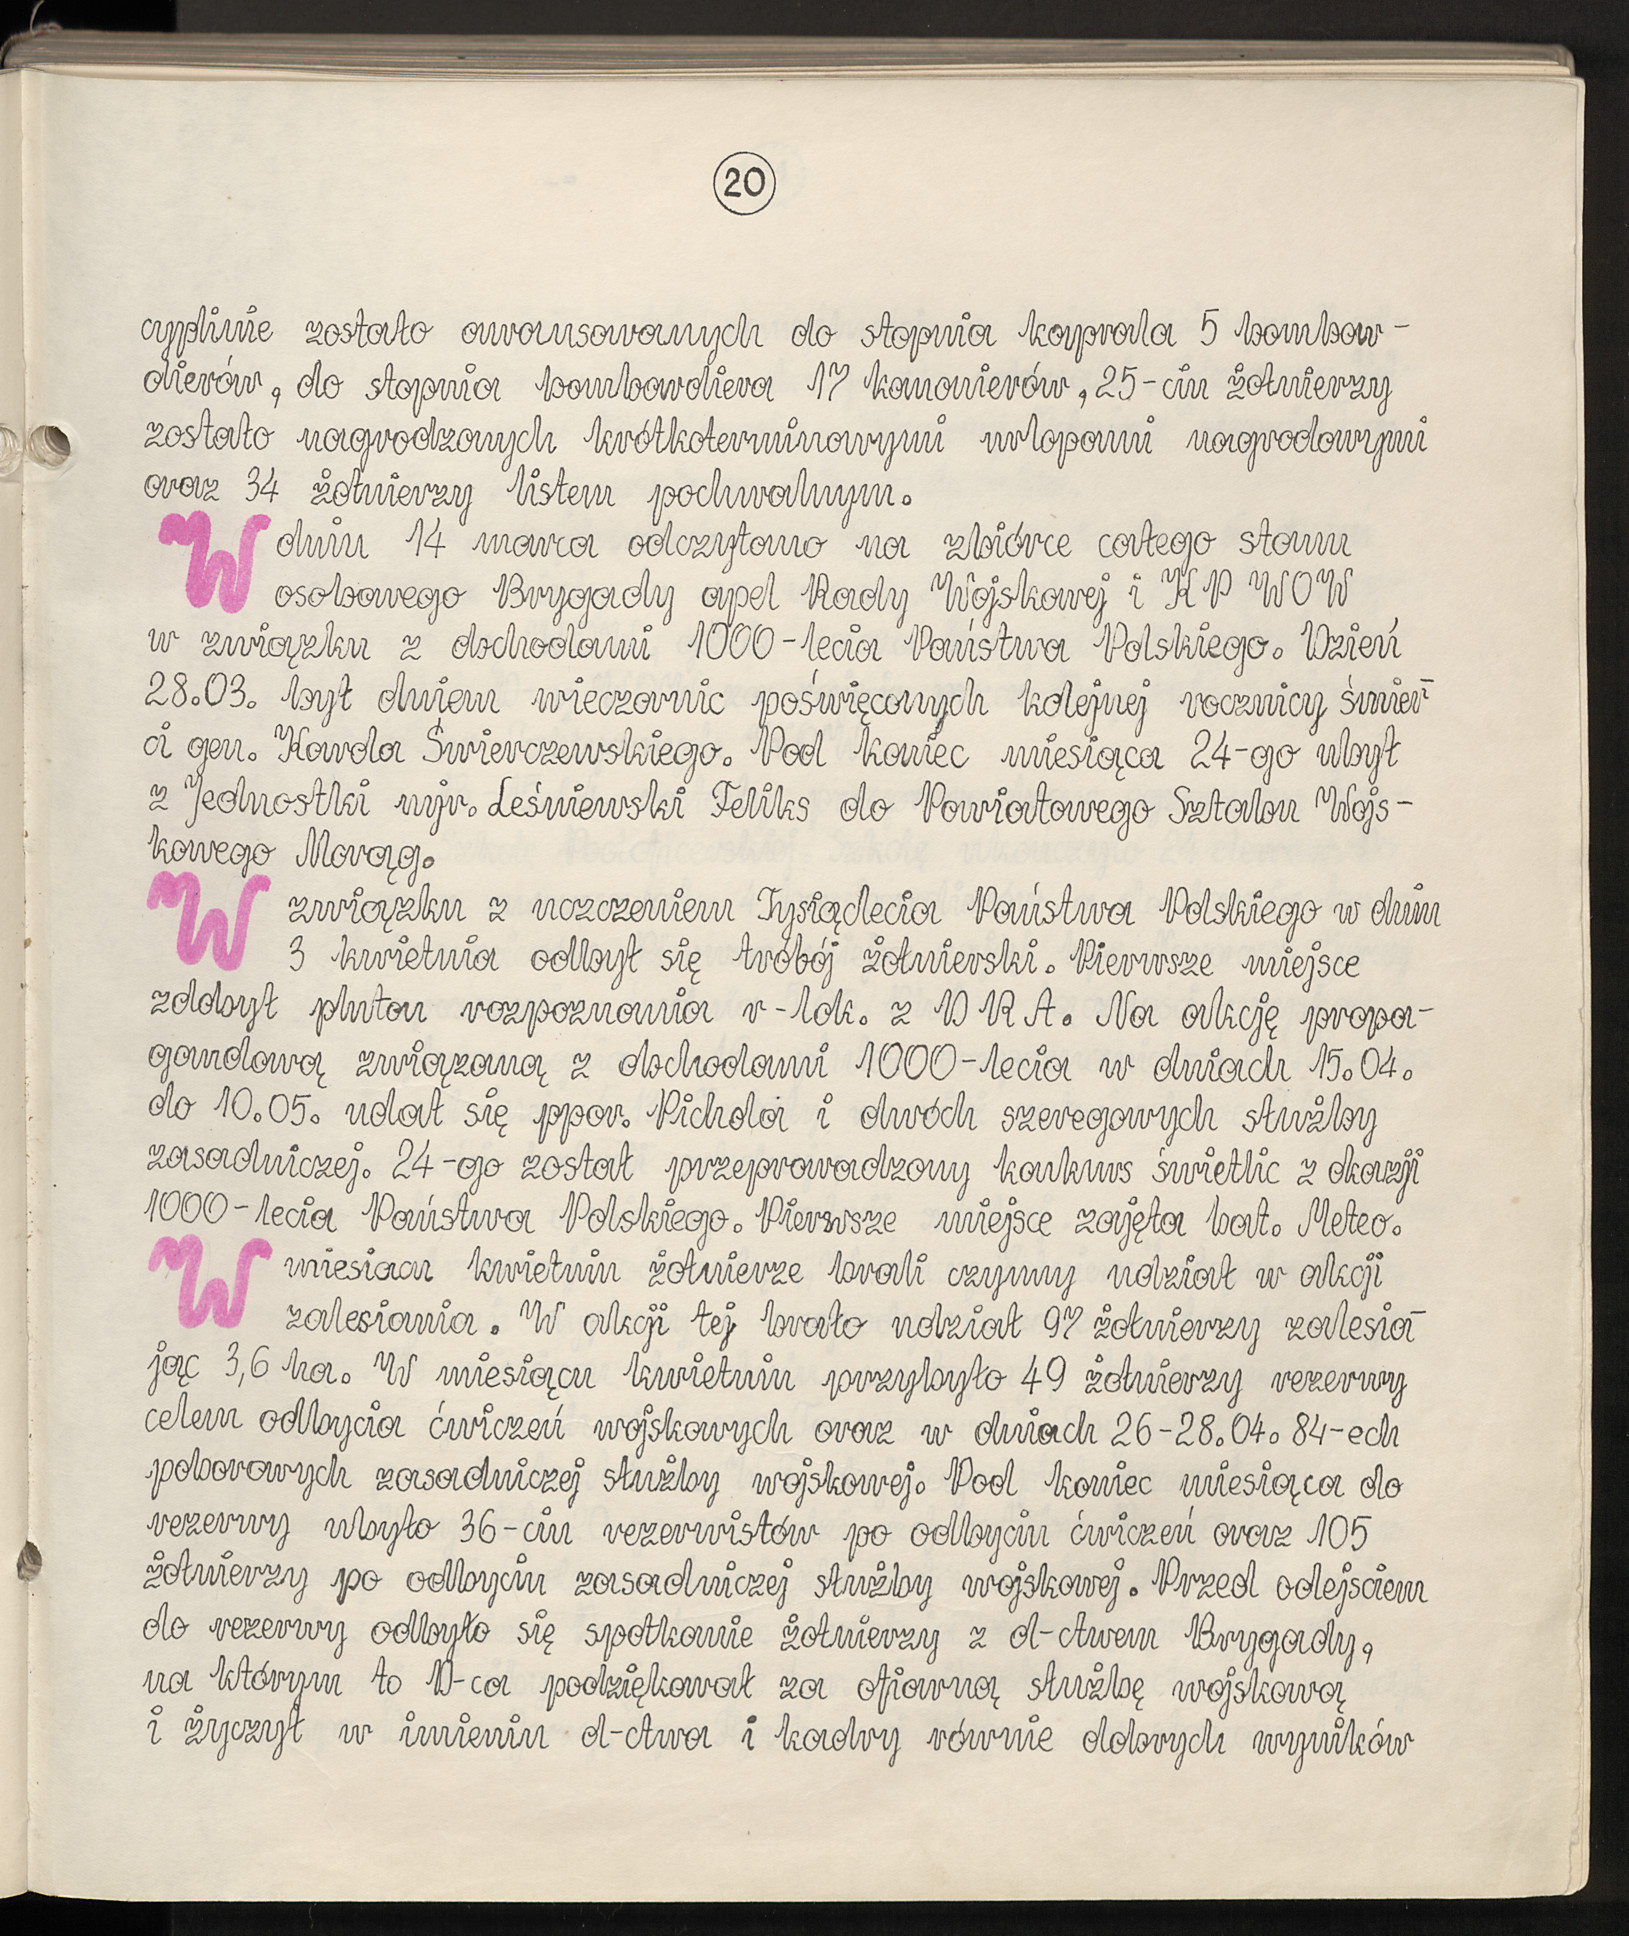 20
cyplinie zostało awansowanych do stopnia kaprala 5 bombar-
dierów, do stopnia bombardiera 17 kanonierów, 25-ciu żołnierzy
zostało nagrodzonych krótkoterminowymi urlopami nagrodowymi
oraz 34 żołnierzy listem pochwalnym.
W dniu 14 marca odczytano na zbiórce całego stanu
osobowego Brygady apel Rady Wojskowej i KP WOW
w związku z obchodami 1000-lecia Państwa Polskiego. Dzień
28.03. był dniem wieczornic poświęconych kolejnej rocznicy śmier-
ci gen. Karola Świerczewskiego. Pod koniec miesiąca 24-go ubył
z Jednostki mjr. Leśniewski Feliks do Powiatowego Sztabu Wojs-
kowego Morąg.
W związku z uczczeniem Tysiąclecia Państwa Polskiego w dniu
3 kwietnia odbył się trójbój żołnierski. Pierwsze miejsce
zdobył pluton rozpoznania r-lok. z DRA. Na akcję propa-
gandową związaną z obchodami 1000-lecia w dniach 15.04.
do 10.05. udał się ppor. Pichola i dwóch szeregowych służby
zasadniczej. 24-go został przeprowadzony konkurs świetlic z okazji
1000-lecia Państwa Polskiego. Pierwsze miejsce zajęła bat. Meteo.
W miesiacu kwietniu żołnierze brali czynny udział w akcji
zalesiania. W akcji tej brało udział 97 żołnierzy zalesia-
jąc 3,6 ha. W miesiącu kwietniu przybyło 49 żołnierzy rezerwy
celem odbycia ćwiczeń wojskowych oraz w dniach 26-28.04. 84-ech
poborowych zasadniczej służby wojskowej. Pod koniec miesiąca do
rezerwy ubyło 36-ciu rezerwistów po odbyciu ćwiczeń oraz 105
żołnierzy po odbyciu zasadniczej służby wojskowej. Przed odejściem
do rezerwy odbyło się spotkanie żołnierzy z d-ctwem Brygady,
na którym to D-ca podziękował za ofiarną służbę wojskową
i życzył w imieniu d-ctwa i kadry równie dobrych wyników